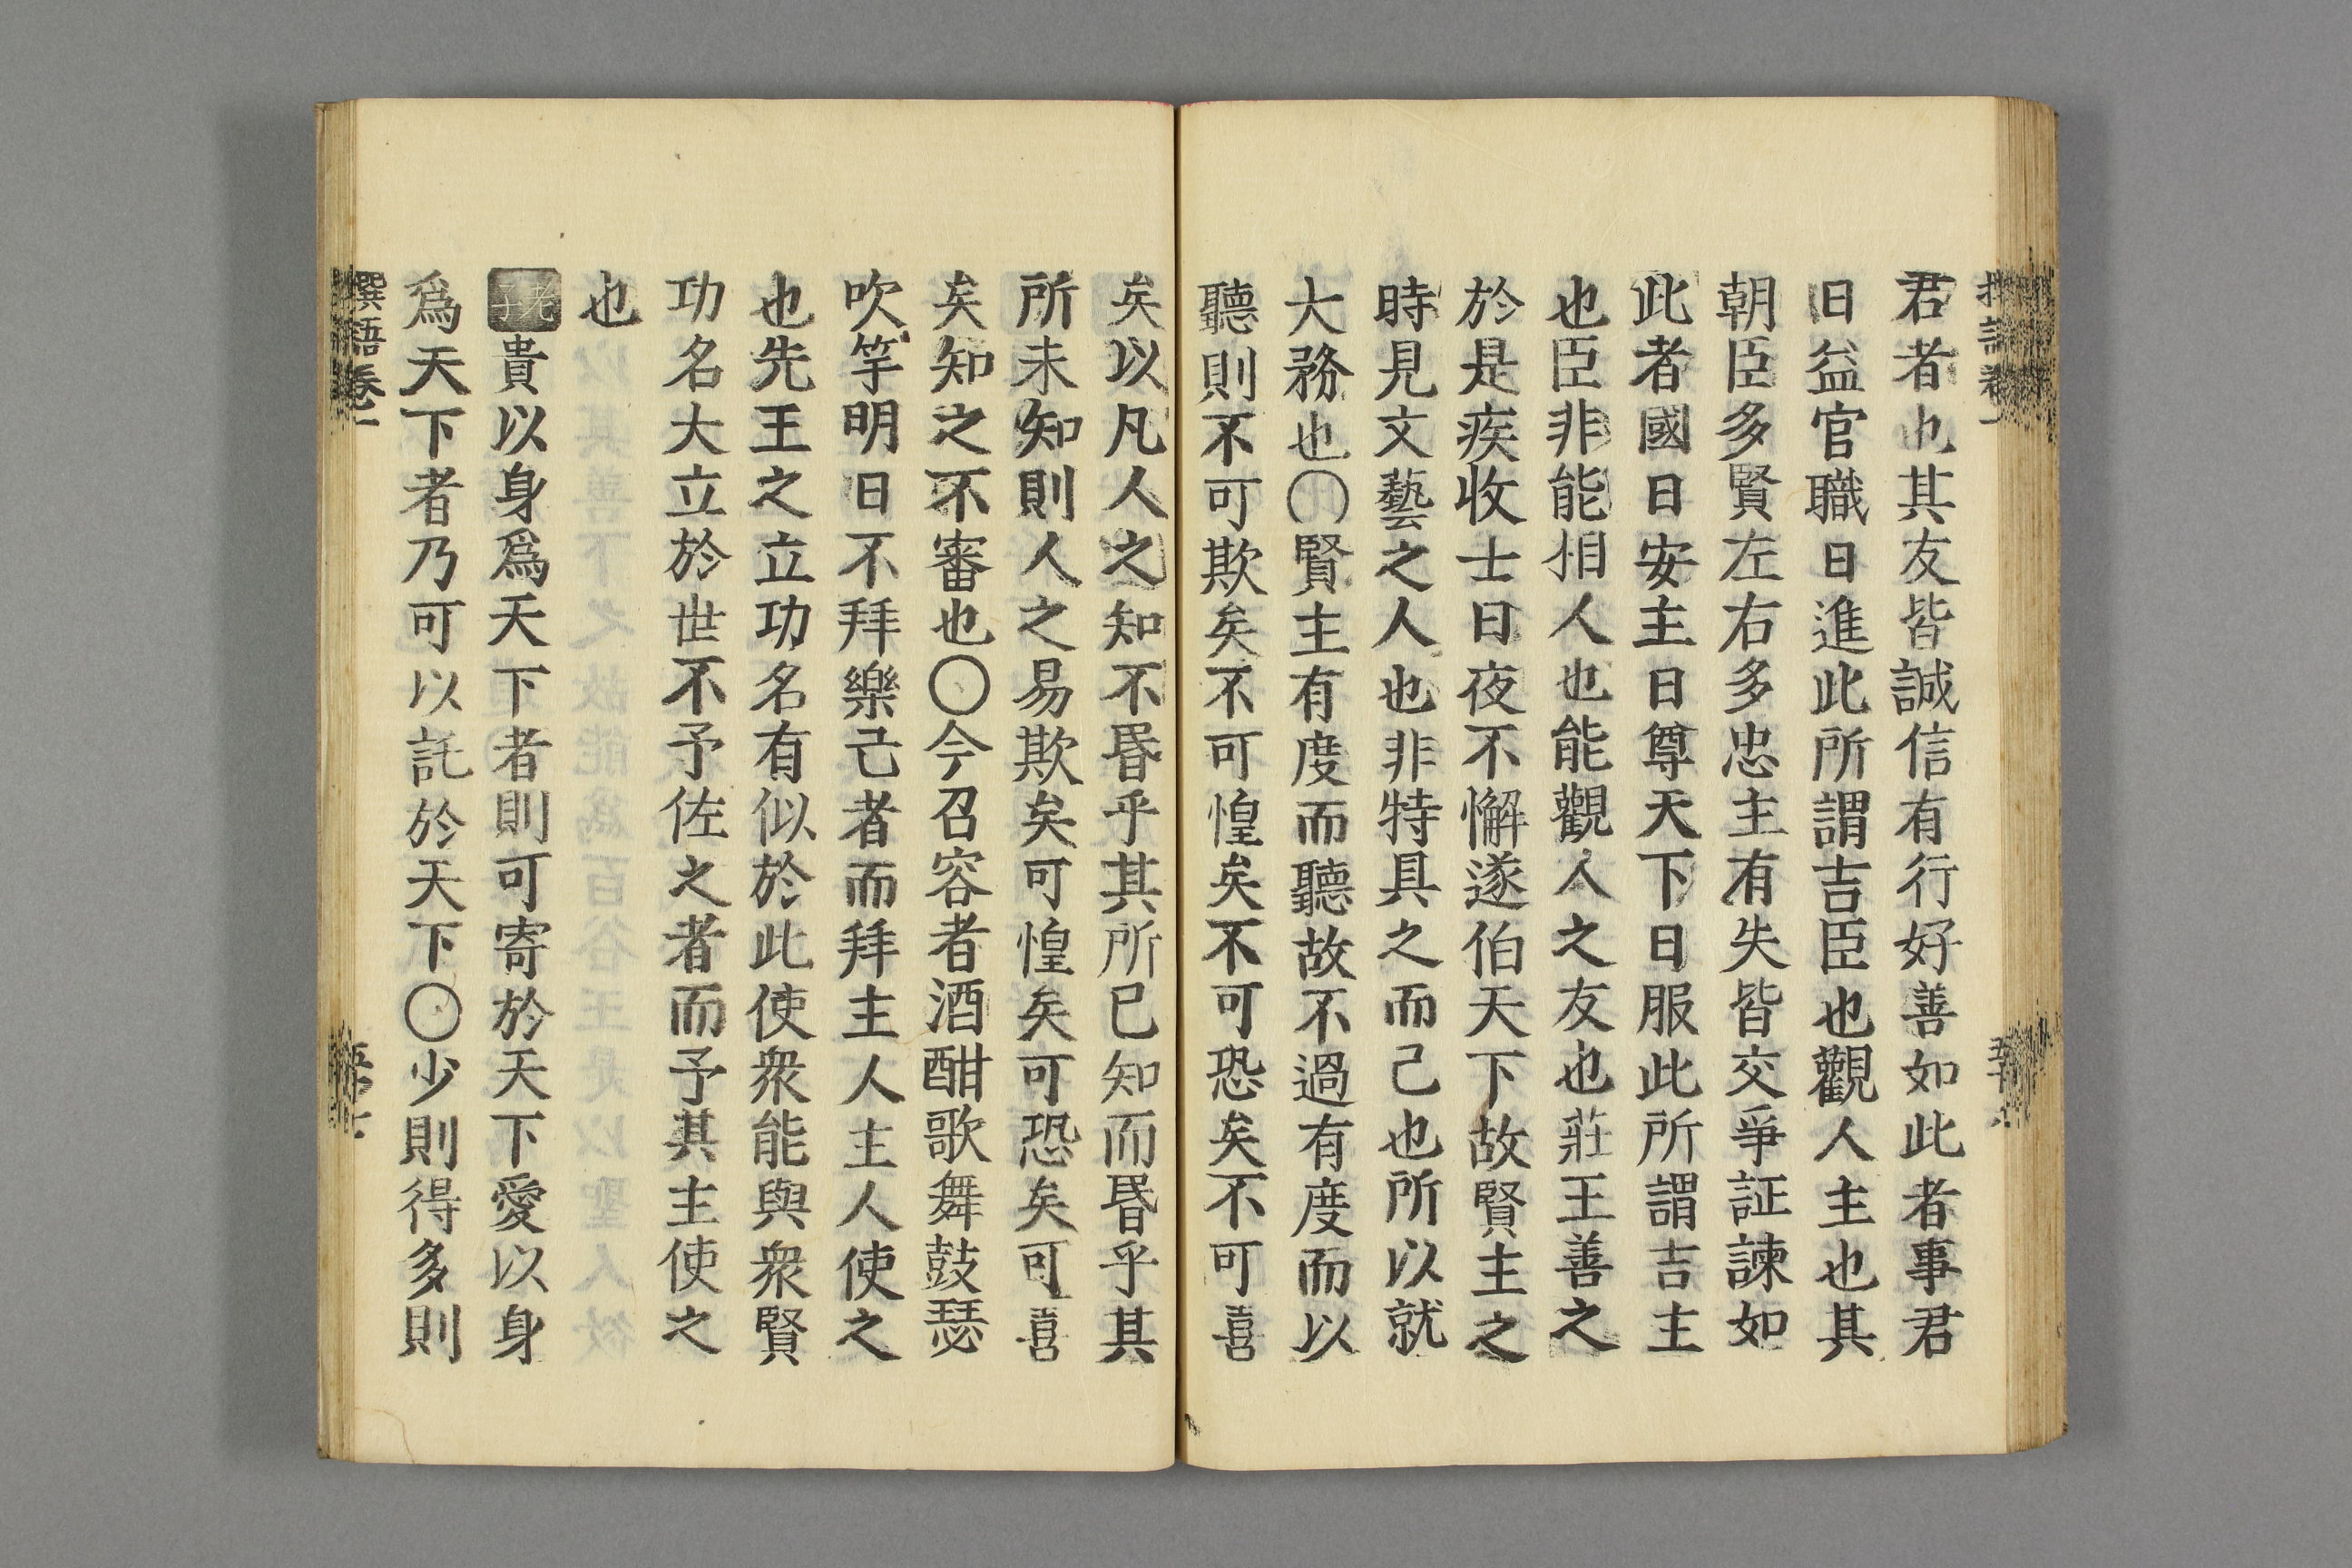 君者也其友皆誠信有行好善如此者事君
日益官職日進此所謂吉臣也觀人主也其
朝臣多賢左右多忠主有失皆交爭証諫如
此者國日安主日尊天下日服此所謂吉主
也臣非能相人也能觀人之友也莊王善之
於是疾收士日夜不懈遂伯天下故賢主之
時見文藝之人也非特具之而己也所以就
大務也〇賢主有度而聽故不過有度而以
聽則不可欺矣不可惶矣不可恐矣不可喜
矣以凡人之知不昬乎其所已知而昬乎其
所未知則人之易欺矣可惶矣可恐矣可喜
矣知之不審也〇今召容者酒酣歌舞鼓瑟
吹竽明日不拜樂己者而拜主人主人使之
也先王之立功名有似於此使衆能與衆賢
功名大立於世不予佐之者而予其主使之
也
老子貴以身爲天下者則可寄於天下愛以身
爲天下者乃可以託於天下〇少則得多則
撰語卷一